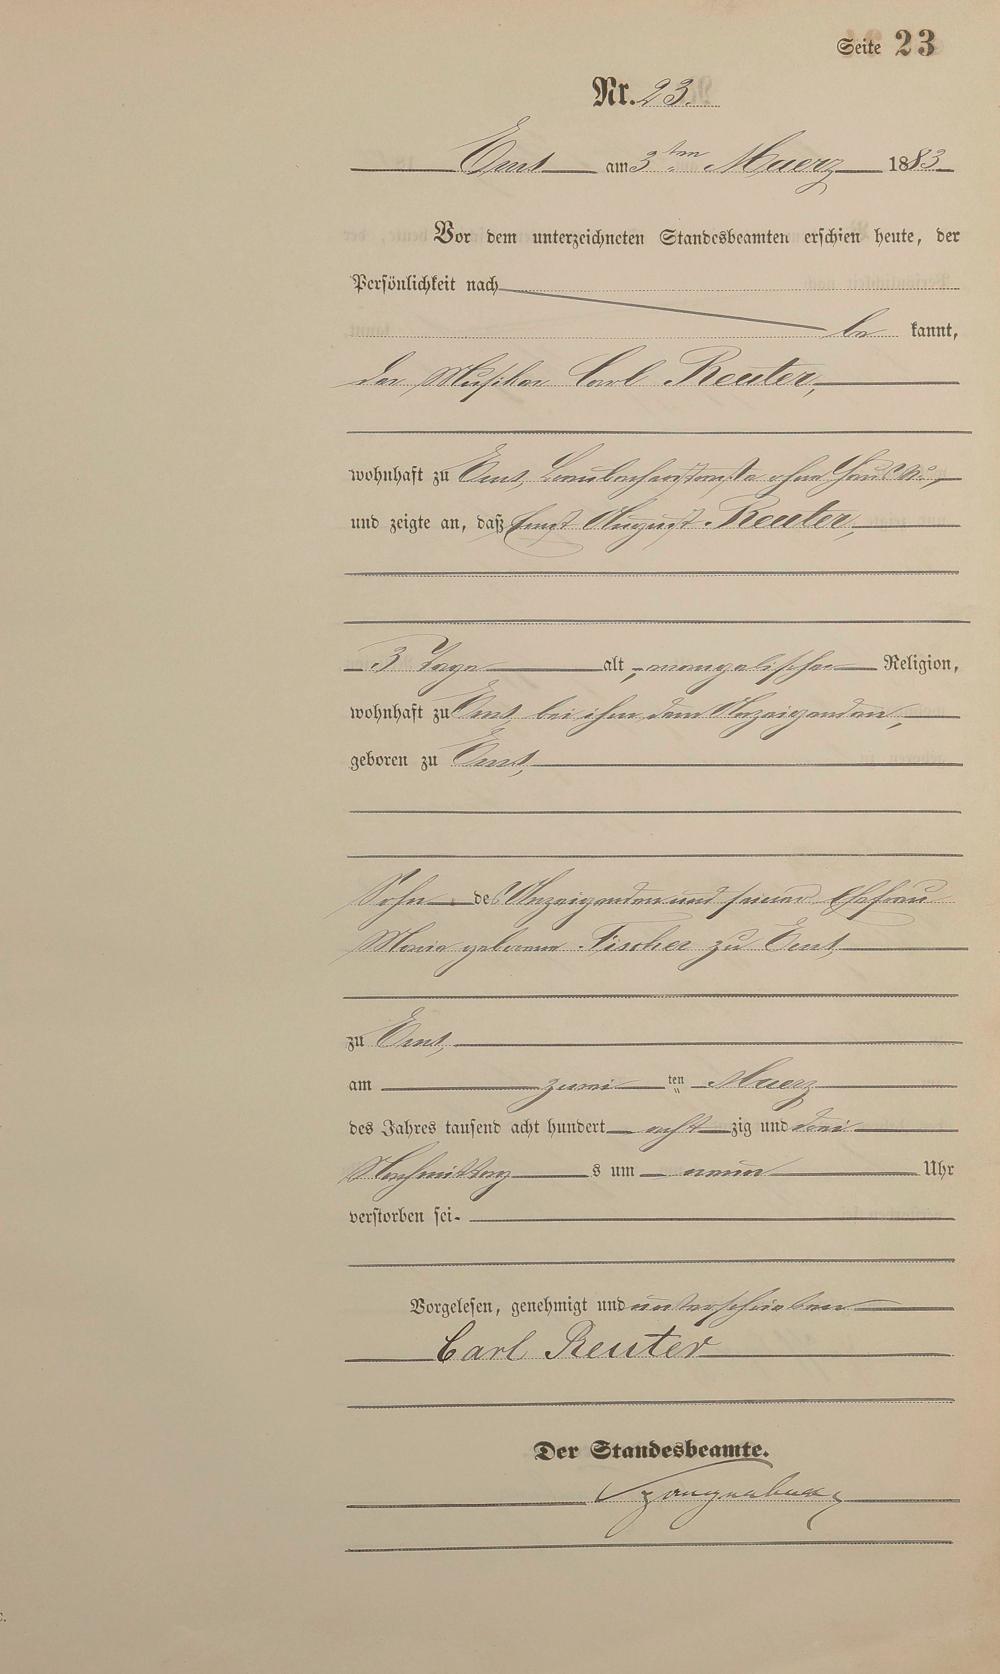 Seite 23
Nr. 23.
Ems am 3ten Maerz 1883
Vor dem unterzeichneten Standesbeamten erschien heute, der
Persönlichkeit nach
be kannt,
der Musiker Carl Reuter,
wohnhaft zu Ems, ohne Haus No,
und zeigte an, daß Ernst August Reuter,
3 Tage alt, evangelischer Religion,
wohnhaft zu Ems, bei ihm dem Anzeigenden,
geboren zu Ems,
Sohn des Anzeigenden und seiner Ehefrau
Maria geborene Fischer zu Ems
zu Ems,
am zwei ten Maerz
des Jahres tausend acht hundert acht zig und drei
Nachmittag s um neun Uhr
verstorben sei.
Vorgelesen, genehmigt und unterschrieben
Carl Reuter
Der Standesbeamte.